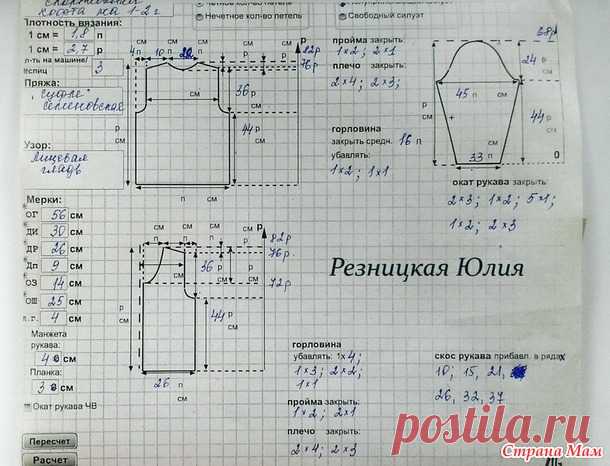 кофта на 1-2 г
Нечетное кол-во петель
Свободный силуэт
Плотность вязания:
1 см = 1,8 п
1 см = 2,7 р
п-ть на машине/
спиц 3
Пряжа:
Семеновская
Узор:
Лицевая
гладь
Мерки:
ОГ 56 см
ДИ 30 см
ДР 26 см
Дп 9 см
ОЗ 14 см
ОШ 25 см
п.г. 4 см
Манжета
рукава:
4 см
Планка:
3 см
Окат рукава ЧВ
Пересчет
Расчет
4 п 10 п 20
р
82р
76р
см
36 р
см
44 р
см
р
см
п
см
пройма закрыть:
1×2; 2×1
плечо закрыть:
2×4; 2×3;
горловина
закрыть средн. 16 п
убавлять:
1×2; 1×1
68р
24
см
45 п
44
см
33 п
0
окат рукава закрыть:
2×3; 1×2; 5×1;
1×2; 2×3
Резницкая Юлия
см см см
п п п р
82р
76р
36 р
см
72р
44 р
см
р
см
26 п
см
горловина
убавлять: 1×4;
1×3; 2×2;
1×1
пройма закрыть:
1×2; 2×1
плечо закрыть:
2×4; 2×3
скос рукава прибавл. в рядах
10; 15, 21,
26, 32, 37
postila.ru
Страна Мам